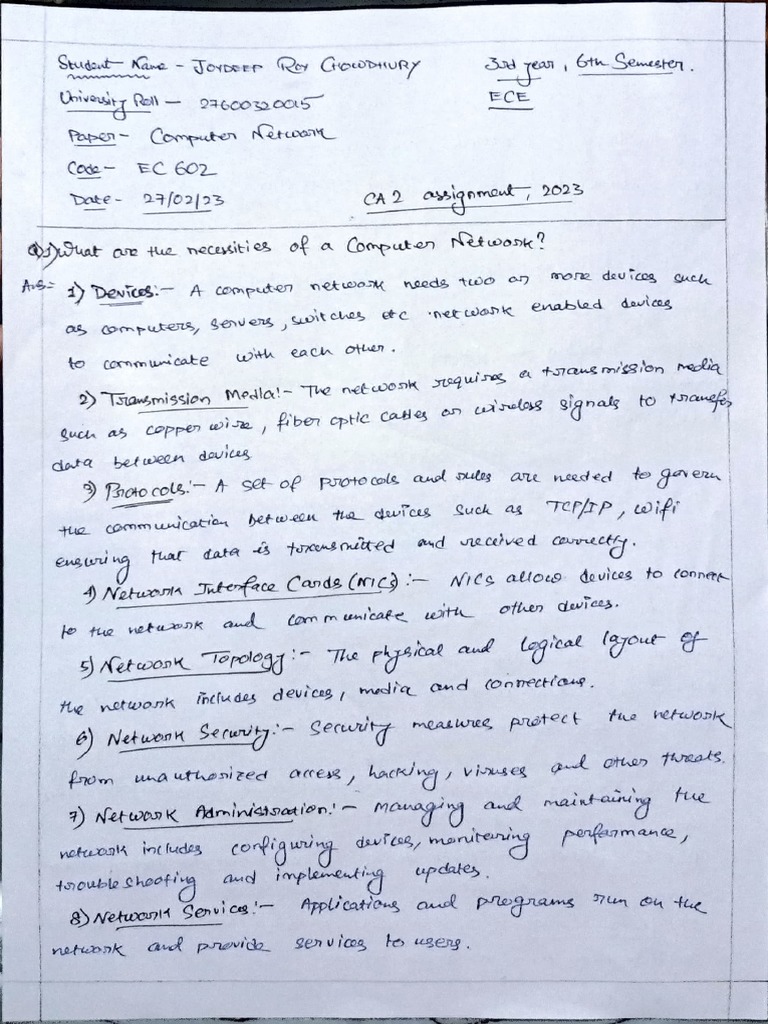 Student Name - JOYDEEP ROY CHOWDHURY 3rd year, 6th Semester.
University Roll - 27600320015 ECE
Paper - Computer Network
Code - EC 602
Date - 27/02/23 CA 2 assignment, 2023
Q1) What are the necessities of a Computer Network?
Ans- 1) Devices:- A computer network needs two or more devices such
as computers, servers, switches etc network enabled devices
to communicate with each other.
2) Transmission Media:- The network requires a transmission media
such as copper wire, fiber optic cables or wireless signals to transfer
data between devices
3) Protocols:- A set of protocols and rules are needed to govern
the communication between the devices such as TCP/IP, wifi
ensuring that data is transmitted and received correctly.
4) Network Interface Cards (NICs):- NICs allow devices to connect
to the network and communicate with other devices.
5) Network Topology:- The physical and logical layout of
the network includes devices, media and connections.
6) Network Security:- Security measures protect the network
from unauthorized access, hacking, viruses and other threats.
7) Network Administration:- Managing and maintaining the
network includes configuring devices, monitering performance,
troubleshooting and implementing updates.
8) Network Services:- Applications and programs run on the
network and provide services to users.